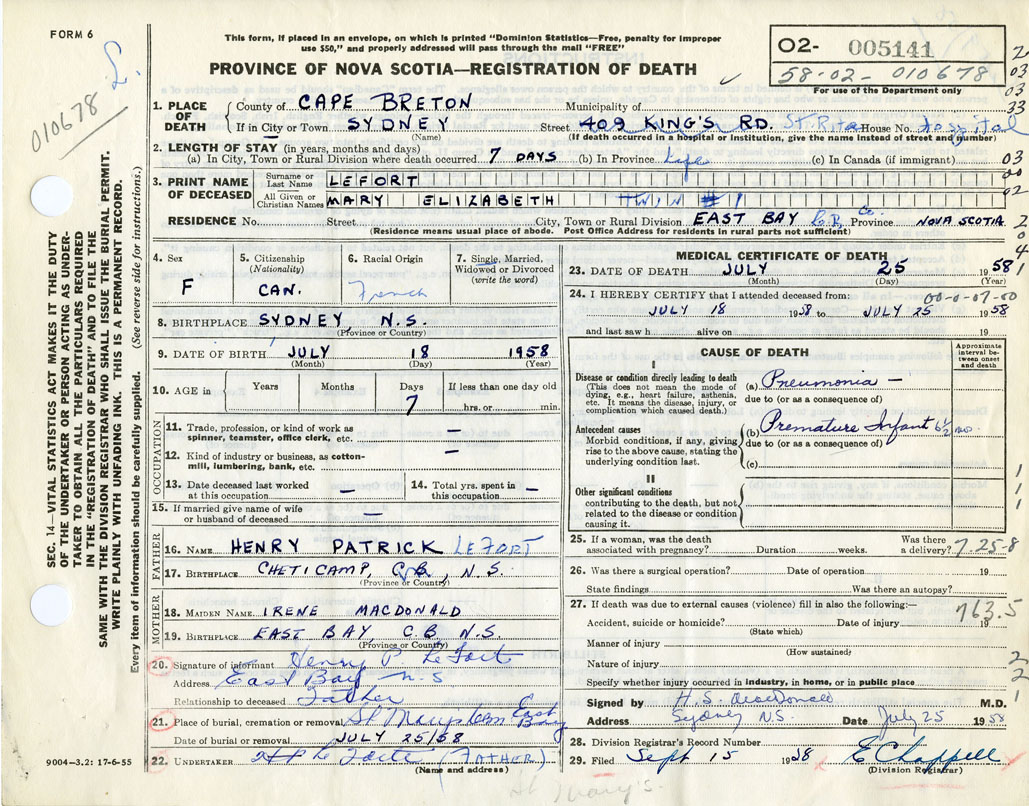 FORM 6
This form, if placed in an envelope, on which is printed "Dominion Statistics—Free, penalty for improper
use $50," and properly addressed will pass through the mail "FREE"
PROVINCE OF NOVA SCOTIA—REGISTRATION OF DEATH
O2- 005141
58-02-010678
For use of the Department only
010678
1. PLACE OF DEATH
County of CAPE BRETON Municipality of
If in City or Town SYDNEY Street 409 KING'S RD. St Rita House No. Hospital
(Name) (If death occurred in a hospital or institution, give the name instead of street and number)
2. LENGTH OF STAY (in years, months and days)
(a) In City, Town or Rural Division where death occurred 7 DAYS (b) In Province Life (c) In Canada (if immigrant)
3. PRINT NAME OF DECEASED
Surname or Last Name LEFORT
All Given or Christian Names MARY ELIZABETH TWIN #1
RESIDENCE No. Street City, Town or Rural Division EAST BAY C.B. Co. Province NOVA SCOTIA
(Residence means usual place of abode. Post Office Address for residents in rural parts not sufficient)
4. Sex
F
5. Citizenship
(Nationality)
CAN.
6. Racial Origin
French
7. Single, Married,
Widowed or Divorced
(write the word)
8. BIRTHPLACE SYDNEY, N.S.
(Province or Country)
9. DATE OF BIRTH JULY 18 1958
(Month) (Day) (Year)
10. AGE in Years Months Days If less than one day old
7 hrs. or min.
OCCUPATION
11. Trade, profession, or kind of work as
spinner, teamster, office clerk, etc. —
12. Kind of industry or business, as cotton-
mill, lumbering, bank, etc. —
13. Date deceased last worked
at this occupation —
14. Total yrs. spent in
this occupation —
15. If married give name of wife
or husband of deceased —
FATHER
16. NAME HENRY PATRICK LEFORT
17. BIRTHPLACE CHETICAMP, C.B., N.S.
(Province or Country)
MOTHER
18. MAIDEN NAME IRENE MACDONALD
19. BIRTHPLACE EAST BAY, C.B. N.S.
(Province or Country)
20. Signature of informant Henry P. LeFort
Address East Bay N.S
Relationship to deceased Father
21. Place of burial, cremation or removal St Marys Cem East Bay
Date of burial or removal JULY 25/58
22. UNDERTAKER H P Le Forte (FATHER)
(Name and address)
9004—3.2: 17-6-55
MEDICAL CERTIFICATE OF DEATH
23. DATE OF DEATH JULY 25 1958
(Month) (Day) (Year)
24. I HEREBY CERTIFY that I attended deceased from: 00-0-07-00
JULY 18 1958 to JULY 25 1958
and last saw h alive on 19
CAUSE OF DEATH
Approximate
interval be-
tween onset
and death
I
Disease or condition directly leading to death
(This does not mean the mode of
dying, e.g., heart failure, asthenia,
etc. It means the disease, injury, or
complication which caused death.)
(a) Pneumonia —
due to (or as a consequence of)
Antecedent causes
Morbid conditions, if any, giving
rise to the above cause, stating the
underlying condition last.
(b) Premature Infant 6½ mos.
due to (or as a consequence of)
(c)
II
Other significant conditions
contributing to the death, but not
related to the disease or condition
causing it.
25. If a woman, was the death
associated with pregnancy? Duration weeks. Was there
a delivery? 7.25-8
26. Was there a surgical operation? Date of operation 19
State findings Was there an autopsy?
27. If death was due to external causes (violence) fill in also the following:—
Accident, suicide or homicide? Date of injury 19
(State which)
763.5
Manner of injury
(How sustained)
Nature of injury
Specify whether injury occurred in industry, in home, or in public place
Signed by H.S. MacDonald M.D.
Address Sydney N.S. Date July 25 1958
28. Division Registrar's Record Number
29. Filed Sept 15 1958 E Chappell
(Division Registrar)
St Mary's.
SEC. 14—VITAL STATISTICS ACT MAKES IT THE DUTY
OF THE UNDERTAKER OR PERSON ACTING AS UNDER-
TAKER TO OBTAIN ALL THE PARTICULARS REQUIRED
IN THE "REGISTRATION OF DEATH" AND TO FILE THE
SAME WITH THE DIVISION REGISTRAR WHO SHALL ISSUE THE BURIAL PERMIT.
WRITE PLAINLY WITH UNFADING INK. THIS IS A PERMANENT RECORD.
Every item of information should be carefully supplied. (See reverse side for instructions.)
2
03
03
33
03
00
02
2
0
4
1
1
1
1
2
2
1